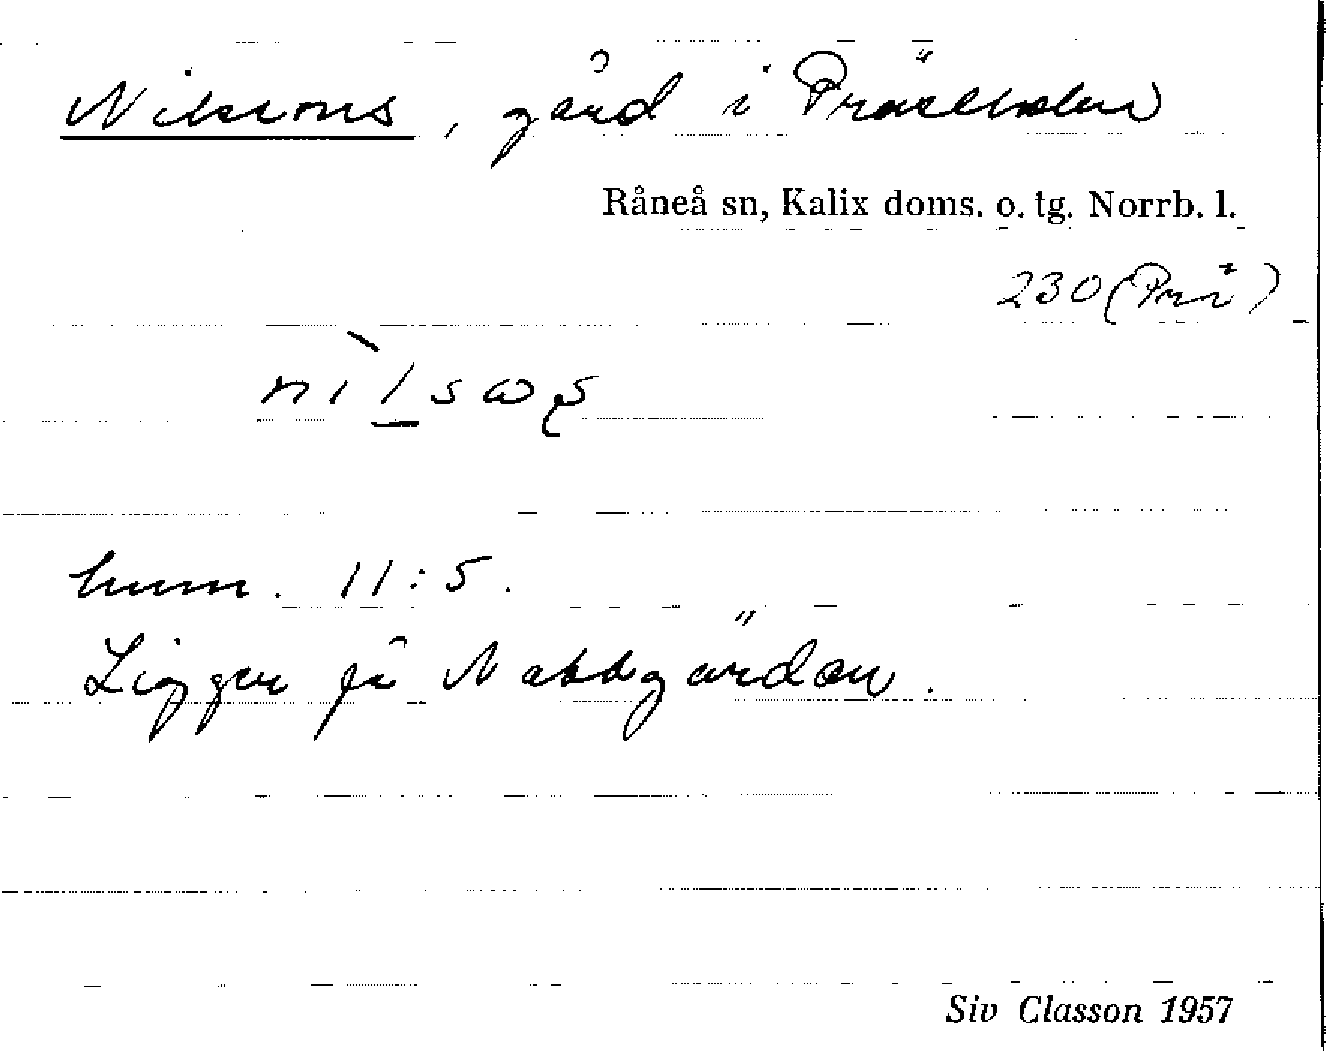 Nilsons, gård i Prästholm
Råneå sn, Kalix doms. o. tg. Norrb. l.
230 (Prä)
hum. 11:5.
Ligger på Nabbgärdan.
Siv Classon 1957